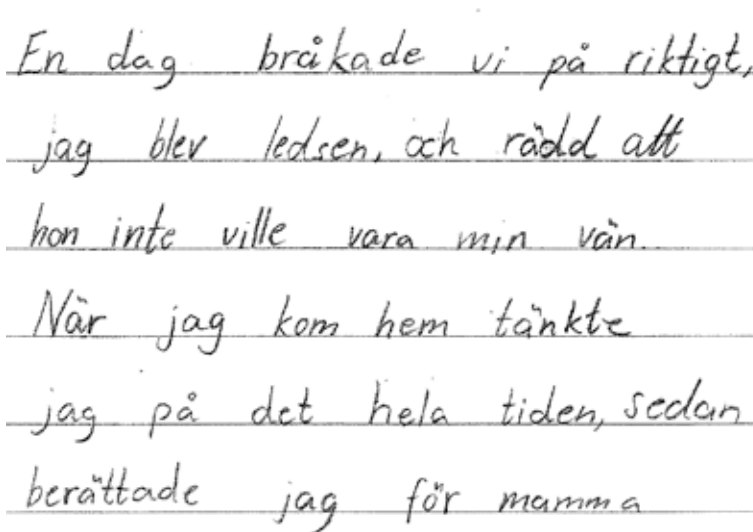 En dag bråkade vi på riktigt,
jag blev ledsen, och rädd att
hon inte ville vara min vän.
När jag kom hem tänkte
jag på det hela tiden, sedan
berättade jag för mamma